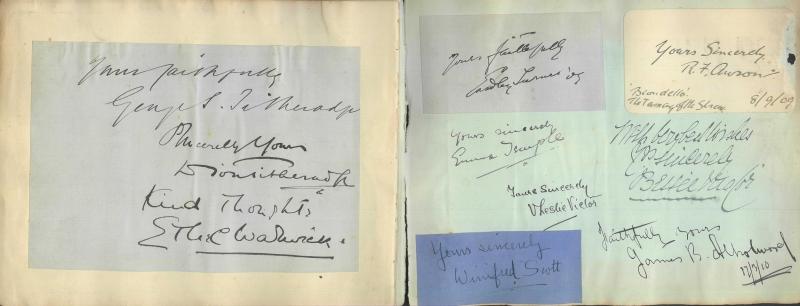 Yours faithfully
George S. Titheradge
Sincerely Yours
Dion Titheradge
Kind Thoughts
Ethel Warwick.
Yours faithfully
'09
Yours Sincerely
R. F.
'Biondello'
The Taming of the Shrew
8/9/09
Yours sincerely
Emma Temple
With best of wishes
Yours sincerely
Yours Sincerely
Leslie Victor
Yours sincerely
Winifred Scott
Faithfully yours
James B. Atholwood